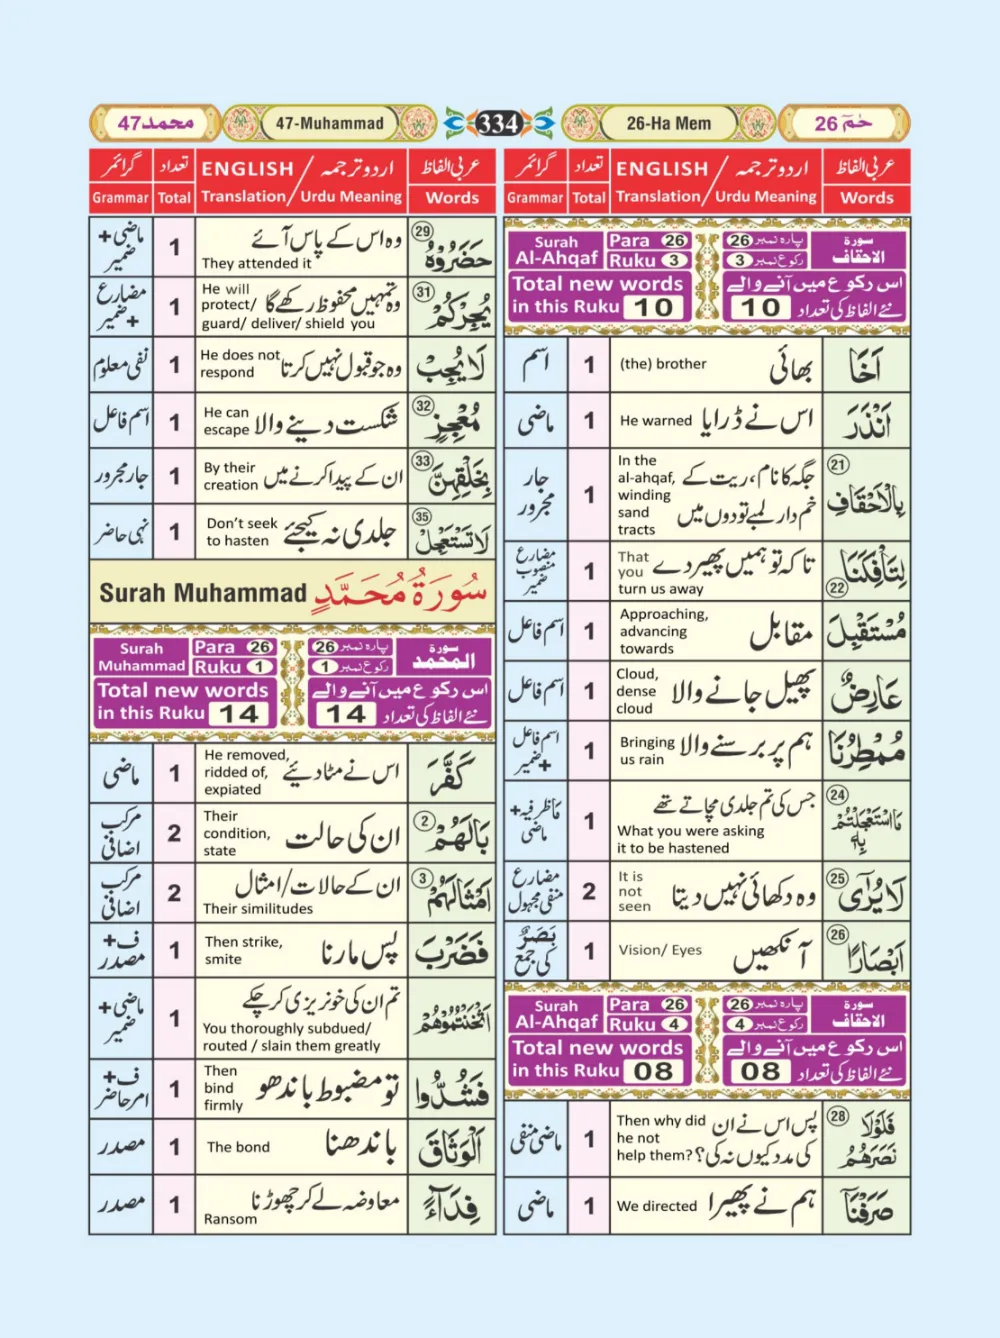 محمد 47
47-Muhammad
334
26-Ha Mem
حٰمٓ 26
عربی الفاظ
اردو ترجمہ / ENGLISH
تعداد
گرائمر
Words
Translation / Urdu Meaning
Total
Grammar
سورۃ الاحقاف
پارہ نمبر 26
رکوع نمبر 3
Para 26
Ruku 3
Surah Al-Ahqaf
اس رکوع میں آنے والے
نئے الفاظ کی تعداد 10
Total new words
in this Ruku 10
اَخَا
بھائی
(the) brother
1
اسم
اَنْذَرَ
اس نے ڈرایا
He warned
1
ماضی
21
بِالْاَحْقَافِ
جگہ کا نام، ریت کے
خم دار لمبے تودوں میں
In the
al-ahqaf,
winding
sand
tracts
1
جار
مجرور
لِتَاْفِكَنَا
22
تاکہ تو ہمیں پھیر دے
That
you
turn us away
1
مضارع
منصوب
ضمیر
مُسْتَقْبِلَ
مقابل
Approaching,
advancing
towards
1
اسم فاعل
عَارِضٌ
پھیل جانے والا
Cloud,
dense
cloud
1
اسم فاعل
مُمْطِرُنَا
ہم پر برسنے والا
Bringing
us rain
1
اسم فاعل
+ضمیر
24
مَا اسْتَعْجَلْتُمْ
بِهٖ
جس کی تم جلدی مچاتے تھے
What you were asking
it to be hastened
1
ماظرفیہ+
ماضی
25
لَا يُرٰٓى
وہ دکھائی نہیں دیتا
It is
not
seen
2
مضارع
منفی مجہول
26
اَبْصَارًا
آنکھیں
Vision/ Eyes
1
بَصَرٌ
کی جمع
سورۃ الاحقاف
پارہ نمبر 26
رکوع نمبر 4
Para 26
Ruku 4
Surah Al-Ahqaf
اس رکوع میں آنے والے
نئے الفاظ کی تعداد 08
Total new words
in this Ruku 08
28
فَلَوْلَا
نَصَرَهُمُ
پس اس نے ان
کی مدد کیوں نہ کی؟
Then why did
he not
help them?
1
ماضی منفی
صَرَفْنَآ
ہم نے پھیرا
We directed
1
ماضی
عربی الفاظ
اردو ترجمہ / ENGLISH
تعداد
گرائمر
Words
Translation / Urdu Meaning
Total
Grammar
29
حَضَرُوْهُ
وہ اس کے پاس آئے
They attended it
1
ماضی+
ضمیر
31
يُجِرْكُمْ
وہ تمہیں محفوظ رکھے گا
He will
protect/
guard/ deliver/ shield you
1
مضارع
+ضمیر
لَا يُجِبْ
وہ جو قبول نہیں کرتا
He does not
respond
1
نفی معلوم
32
مُعْجِزٍ
شکست دینے والا
He can
escape
1
اسم فاعل
33
بِخَلْقِهِنَّ
ان کے پیدا کرنے میں
By their
creation
1
جار مجرور
35
لَا تَسْتَعْجِلْ
جلدی نہ کیجئے
Don't seek
to hasten
1
نہی حاضر
سُوْرَةُ مُحَمَّدٍ
Surah Muhammad
سورۃ المحمد
پارہ نمبر 26
رکوع نمبر 1
Para 26
Ruku 1
Surah Muhammad
اس رکوع میں آنے والے
نئے الفاظ کی تعداد 14
Total new words
in this Ruku 14
كَفَّرَ
اس نے مٹا دیئے
He removed,
ridded of,
expiated
1
ماضی
2
بَالَهُمْ
ان کی حالت
Their
condition,
state
2
مرکب
اضافی
3
اَمْثَالَهُمْ
ان کے حالات/امثال
Their similitudes
2
مرکب
اضافی
فَضَرْبَ
پس مارنا
Then strike,
smite
1
ف+
مصدر
اَثْخَنْتُمُوْهُمْ
تم ان کی خونریزی کر چکے
You thoroughly subdued/
routed / slain them greatly
1
ماضی+
ضمیر
فَشُدُّوا
تو مضبوط باندھو
Then
bind
firmly
1
ف+
امر حاضر
الْوَثَاقَ
باندھنا
The bond
1
مصدر
فِدَآءً
معاوضہ لے کر چھوڑنا
Ransom
1
مصدر